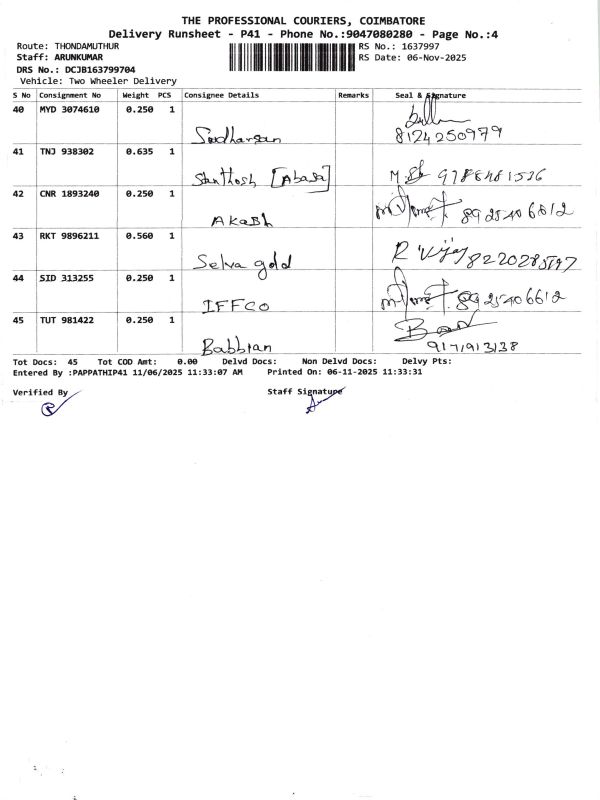 THE PROFESSIONAL COURIERS, COIMBATORE
Delivery Runsheet - P41 - Phone No.:9047080280 - Page No.:4
Route: THONDAMUTHUR RS No.: 1637997
Staff: ARUNKUMAR RS Date: 06-Nov-2025
DRS No.: DCJB163799704
Vehicle: Two Wheeler Delivery
S No Consignment No Weight PCS Consignee Details Remarks Seal & Signature
40 MYD 3074610 0.250 1
Sudharsan 8124250979
41 TNJ 938302 0.635 1
Santhosh [Abasa]
42 CNR 1893240 0.250 1
Akash 8925406612
43 RKT 9896211 0.560 1
Selva gold R Vijay
44 SID 313255 0.250 1
IFFCO 8925406612
45 TUT 981422 0.250 1
Tot Docs: 45 Tot COD Amt: 0.00 Delvd Docs: Non Delvd Docs: Delvy Pts:
Entered By :PAPPATHIP41 11/06/2025 11:33:07 AM Printed On: 06-11-2025 11:33:31
Verified By Staff Signature